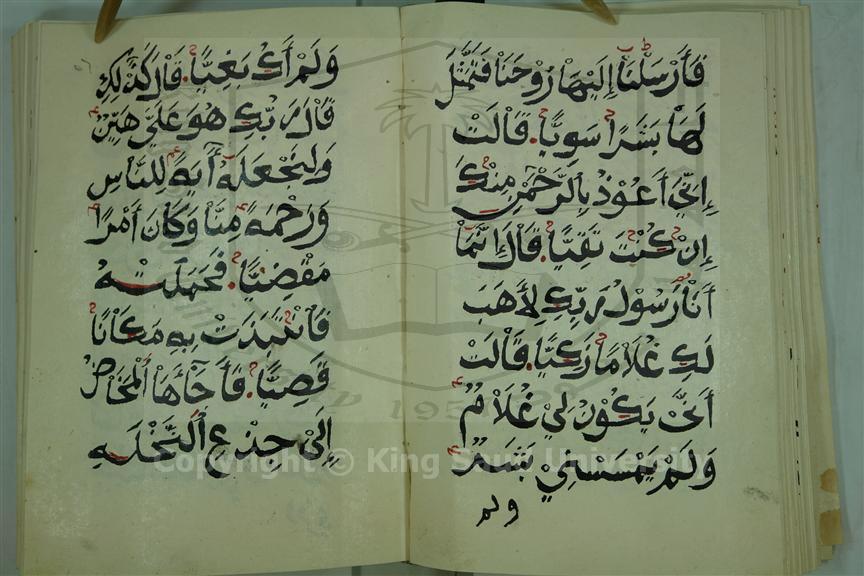 فَأَرْسَلْنَا إِلَيْهَا رُوْحَنَا فَتَمَثَّلَ
لَهَا بَشَرًا سَوِيًّا. قَالَتْ
إِنِّي أَعُوْذُ بِالرَّحْمٰنِ مِنْكَ
إِنْ كُنْتَ تَقِيًّا. قَالَ إِنَّمَا
أَنَا رَسُوْلُ رَبِّكِ لِأَهَبَ
لَكِ غُلَامًا زَكِيًّا. قَالَتْ
أَنَّى يَكُوْنُ لِيْ غُلَامٌ
وَلَمْ يَمْسَسْنِيْ بَشَرٌ
ولم
وَلَمْ أَكُ بَغِيًّا. قَالَ كَذٰلِكِ
قَالَ رَبُّكِ هُوَ عَلَيَّ هَيِّنٌ
وَلِنَجْعَلَهُ آيَةً لِلنَّاسِ
وَرَحْمَةً مِنَّا وَكَانَ أَمْرًا
مَقْضِيًّا. فَحَمَلَتْهُ
فَانْتَبَذَتْ بِهِ مَكَانًا
قَصِيًّا. فَأَجَآءَهَا الْمَخَاضُ
إِلَىٰ جِذْعِ النَّخْلَةِ
Copyright © King Saud University
1957